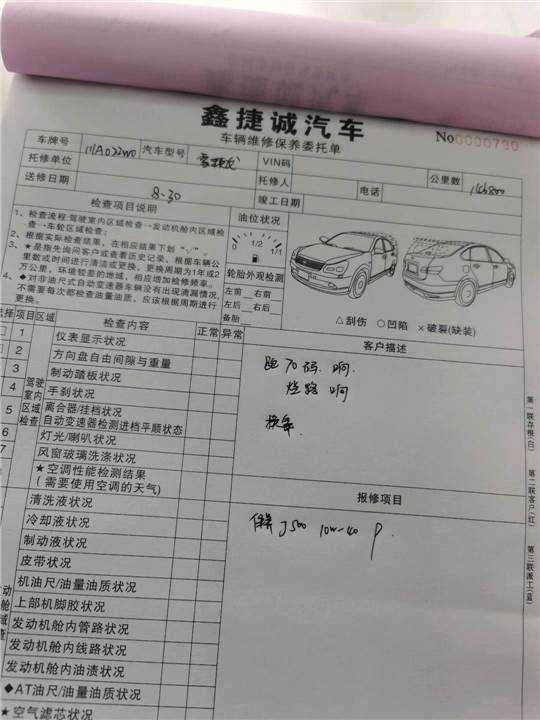 鑫捷诚汽车
车辆维修保养委托单
No0000790
车牌号 川A022W0 汽车型号 VIN码
托修单位 托修人 电话 公里数 146800
送修日期 8-30 竣工日期
检查项目说明
1、检查流程:驾驶室内区域检查→发动机舱内区域检查→车轮区域检查;
2、根据实际检查结果,在相应结果下划“√”。
3、★是指先询问客户或查看历史记录,根据车辆公里数或时间进行清洁或更换,更换周期为1年或2万公里,环境较差的地域,相应增加检修频率。
4、◆对非油尺式自动变速器车辆没有出现滴漏情况,不需要每次都检查油量油质,应该根据周期进行更换。
油位状况
0 1/2 1/1
轮胎外观检测
左前 右前
左后 右后
备胎
△刮伤 ○凹陷 ×破裂(缺装)
选择 项目 区域 检查内容 正常 异常
客户描述
跑70码 响
烂路 响
换车
驾驶室内区域检查
1 仪表显示状况
2 方向盘自由间隙与重量
3 制动踏板状况
4 手刹状况
5 离合器/挂档状况
自动变速器检测进档平顺状态
6 灯光/喇叭状况
7 风窗玻璃洗涤状况
★空调性能检测结果
(需要使用空调的天气)
报修项目
保养 J500 10w-40 P.
清洗液状况
冷却液状况
制动液状况
皮带状况
机油尺/油量油质状况
上部机脚胶状况
发动机舱内管路状况
发动机舱内线路状况
发动机舱内油渍状况
◆AT油尺/油量油质状况
★空气滤芯状况
动舱域
第一联存根(白)
第二联客户(红)
第三联派工(蓝)